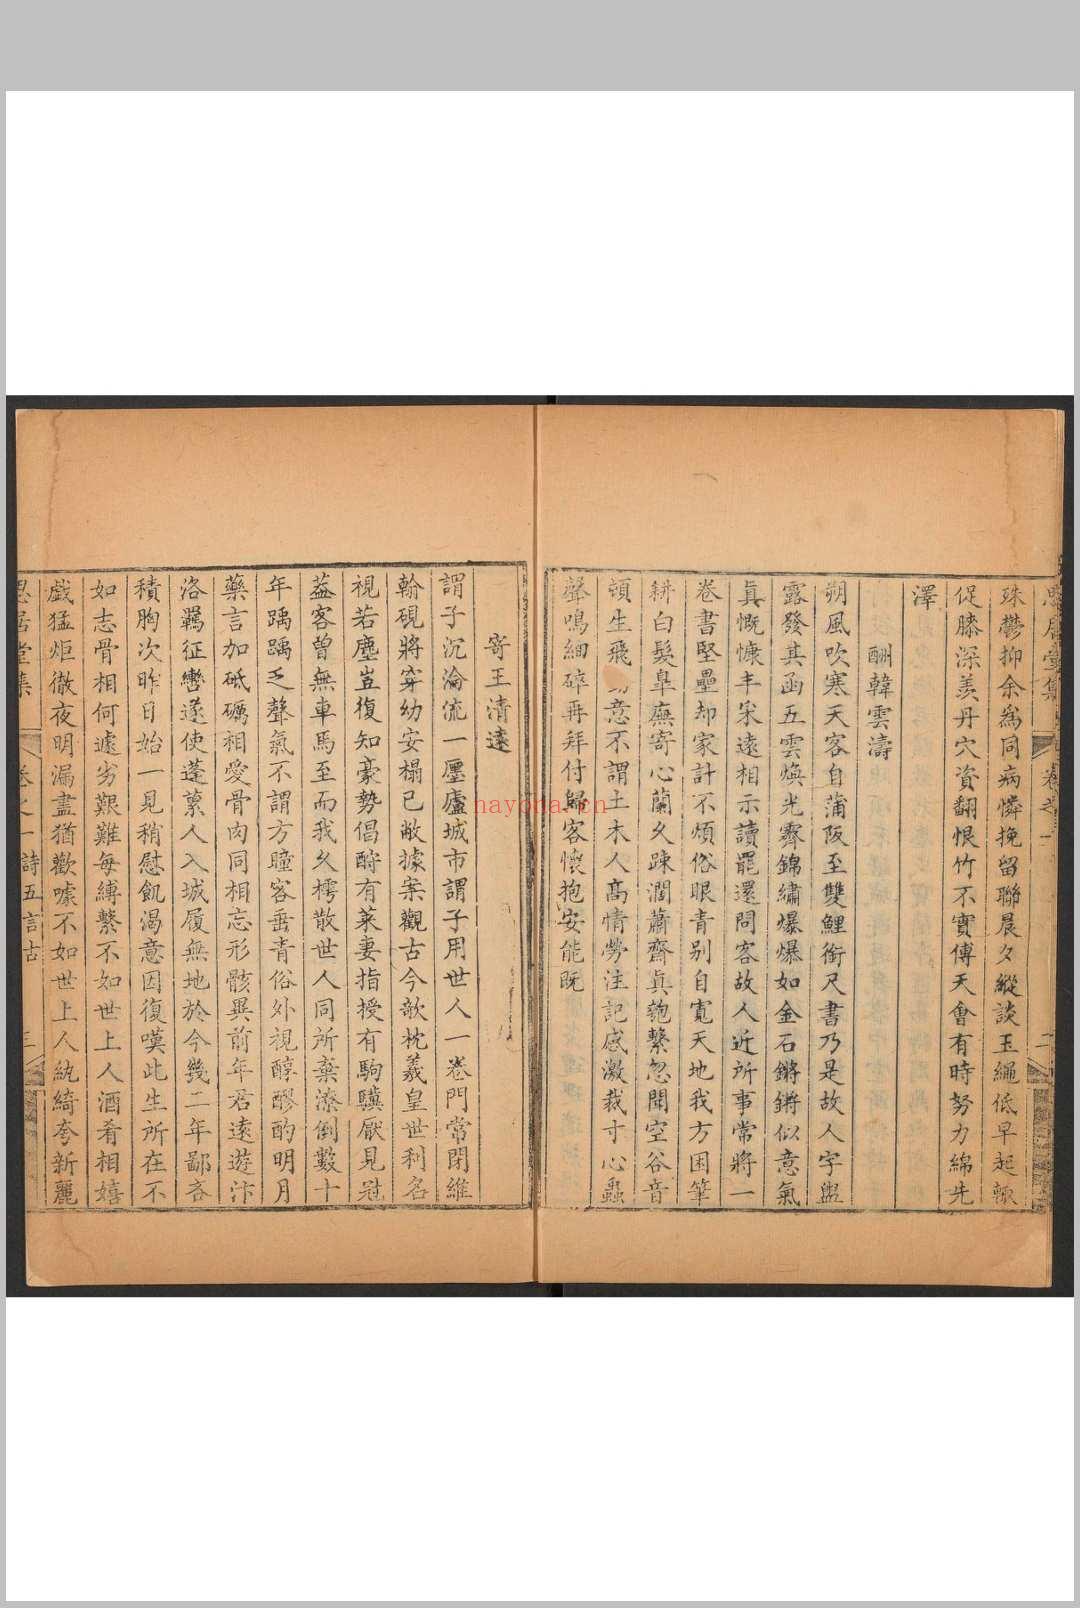 殊鬱抑余為同病憐挽留聯晨夕縱談玉繩低早起輙
促膝深羨丹穴資翻恨竹不實傳天會有時努力綿先
澤
酬韓雲濤
朔風吹寒天客自蒲阪至雙鯉銜尺書乃是故人字盥
露發其函五雲煥光霽錦繡爆爆如金石鏘鏘似意氣
眞慨慷丰采遠相示讀罷還問客故人近所事常將一
卷書堅壘却家計不煩俗眼青别自寬天地我方困筆
耕白髮臯廡寄心蘭久踈濶蕭齋眞匏繫忽聞空谷音
頓生飛意不謂土木人高情勞注記感激裁寸心蟲
聲鳴細碎再拜付歸客懷抱安能旣
寄王清遠
謂子沉淪流一廛廬城市謂子用世人一卷門常閉維
翰硯將穿幼安榻已敝據案觀古今歌枕羲皇世利名
視若塵豈復知豪勢倡酬有萊妻指授有駒驥厭見冠
葢客曾無車馬至而我久樗散世人同所棄潦倒數十
年踽踽乏聲氣不謂方瞳客垂青俗外視醇醪酌明月
藥言加砥礪相愛骨肉同相忘形骸異前年君遠遊汴
洛羈征轡遂使蓬藁人入城履無地於今幾二年鄙吝
積胸次昨日始一見稍慰飢渴意因復嘆此生所在不
如志骨相何遽劣艱難每縛繫不如世上人酒肴相嬉
戯猛炬徹夜明漏盡猶歡噱不如世上人紈綺夸新麗
思居堂集 卷之一 詩五言古 三
hayona.cn